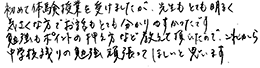 初めて体験授業を受けましたが、先生もとても明るく
気さくな方でお話もとても分かりやすかったです
勉強もポイントの押え方など教えて頂いたので、これから
中学校残りの勉強頑張ってほしいと思います。